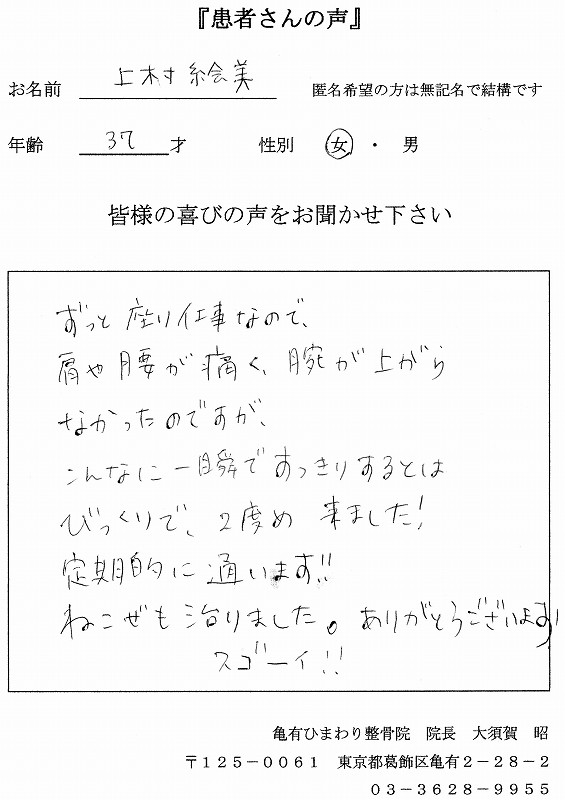 『患者さんの声』
お名前 上村 絵美 匿名希望の方は無記名で結構です
年齢 37 才 性別 女 ・ 男
皆様の喜びの声をお聞かせ下さい
ずっと座り仕事なので、
肩や腰が痛く、腕が上がら
なかったのですが、
こんなに一瞬ですっきりするとは
びっくりで、2度め 来ました!
定期的に通います!!
ねこぜも治りました。ありがとうございます!
スゴーイ!!
亀有ひまわり整骨院 院長 大須賀 昭
〒125-0061 東京都葛飾区亀有2-28-2
03-3628-9955